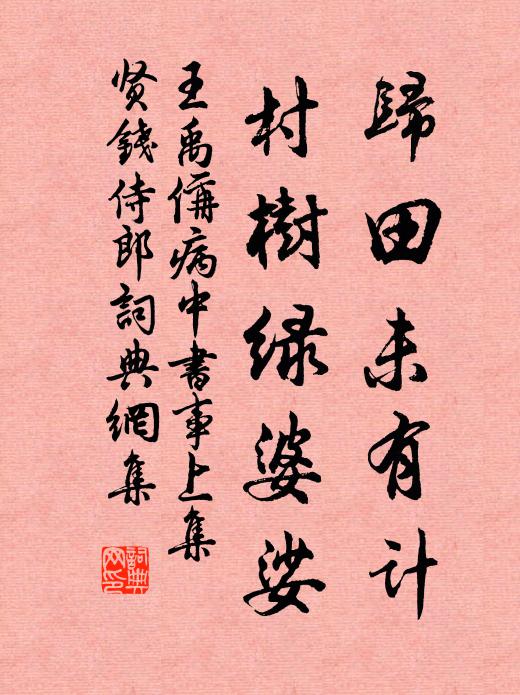 歸田未有计
村樹緑婆娑
王禹偁病中書事上集
贤錢侍郎詞典網集
詞典
网印